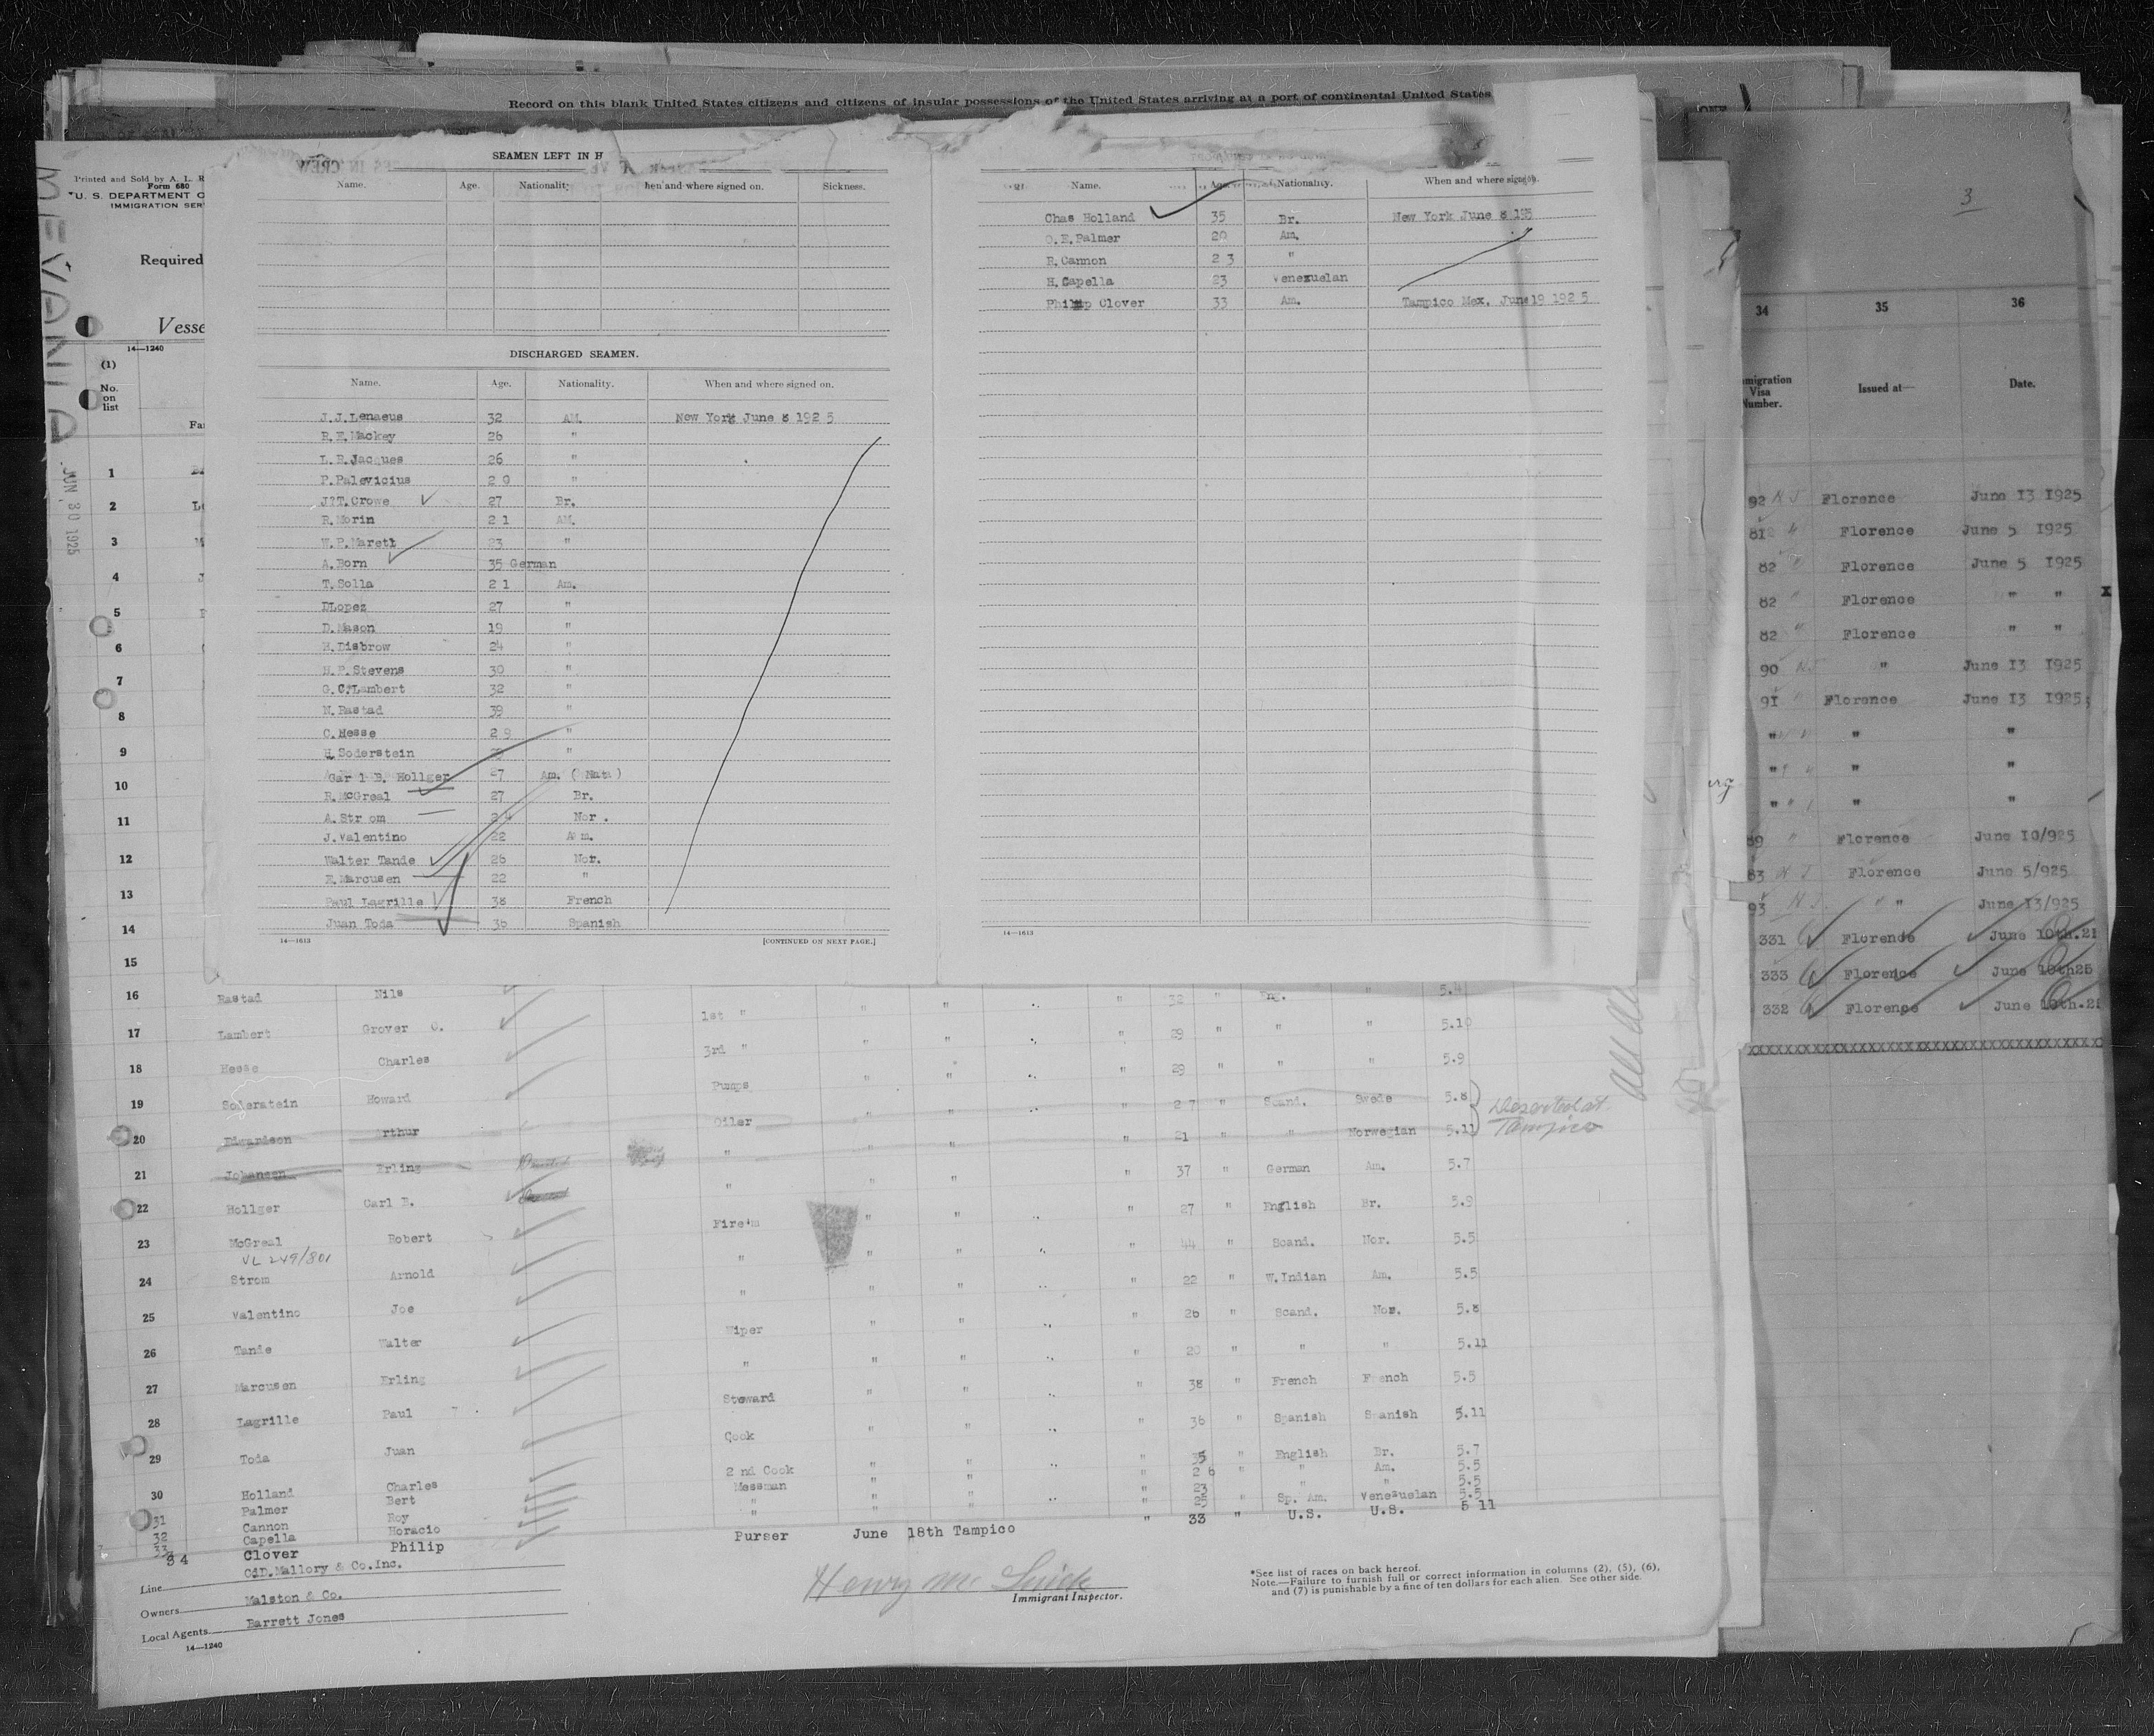 Record on this blank United States citizens and citizens of insular possessions of the United States arriving at a port of continental United States
Printed and Sold by A. L. R
Form 680
U. S. DEPARTMENT O
IMMIGRATION SER
Required
Vesse
14—1240
(1)
No. on list
Fa
JUN 30 1925
SEAMEN LEFT IN H
Name. Age. Nationality hen and where signed on. Sickness.
DISCHARGED SEAMEN.
Name. Age. Nationality. When and where signed on.
J.J.Lenaeus 32 AM. New York June 8 192 5
R.E.Mackey 26 "
L.E.Jacques 26 "
P.Palevicius 2 9 "
J?T.Crowe 27 Br.
R.Morin 2 1 AM.
W.P.Marett 23 "
A.Born 35 German
T.Solla 2 1 Am.
DLopez 27 "
D.Mason 19 "
H.Disbrow 24 "
H.P.Stevens 30 "
G.C.Lambert 32 "
N.Rastad 39 "
C.Hesse 2 9 "
H.Soderstein "
Carl B. Hollger Am. ( Nat )
R.McGreal 27 Br.
A.Strom Nor.
J.Valentino 22 Am.
Walter Tande 26 Nor.
E.Marcusen 22 "
Paul Lagrille 38 French
Juan Toda 36 Spanish
14—1613 [CONTINUED ON NEXT PAGE.]
Name. Age. Nationality. When and where signed on.
Chas Holland 35 Br. New York June 8 195
O.E.Palmer 20 Am.
R.Cannon 2 3 "
H.Capella 23 Venezuelan
Philip Clover 33 Am. Tampico Mex. June19 192 5
14—1613
3
34 35 36
migration Visa Number. Issued at— Date.
92 Florence June 13 1925
81 Florence June 5 1925
82 Florence June 5 1925
82 Florence " "
82 Florence " "
90 " June 13 1925
91 Florence June 13 1925;
" " "
" " "
" " "
89 Florence June 10/925
83 Florence June 5/925
93 " " June 13/925
331 Florence June 10th.2
333 Florence June 10th25
332 Florence June 10th.2
XXXXXXXXXXXXXXXXXXXXXXXXXXXXXXXXXXXXXX
1
2
3
4
5
6
7
8
9
10
11
12
13
14
15
16 Rastad Nils 1st " 32 " Eng. " 5.4
17 Lambert Grover C. 3rd " 29 " " " 5.10
18 Hesse Charles Pumps 29 " " " 5.9
19 Soderstein Howard Oiler 27 " Scand. Swede 5.8
20 Edvardson Arthur " 21 " " Norwegian 5.11 Deserted at Tampico
21 Johansen Erling " 37 " German Am. 5.7
22 Hollger Carl B. Fire'm 27 " English Br. 5.9
23 McGreal Robert " 44 " Scand. Nor. 5.5
VL 249/801
24 Strom Arnold " 22 " W.Indian Am. 5.5
25 Valentino Joe Wiper 26 " Scand. Nor. 5.8
26 Tande Walter " 20 " " " 5.11
27 Marcusen Erling Steward 38 " French French 5.5
28 Lagrille Paul Cook 36 " Spanish Spanish 5.11
29 Toda Juan 2 nd Cook 35 " English Br. 5.7
30 Holland Charles Messman 2 6 " " Am. 5.5
31 Palmer Bert " 23 " " 5.5
32 Cannon Roy " 23 " Sp. Am. Venezuelan 5.5
33 Capella Horacio
34 Clover Philip Purser June 18th Tampico " 33 " U.S. U.S. 5 11
Line C.D.Mallory & Co.Inc.
Owners Malston & Co.
Local Agents Barrett Jones
14—1240
Immigrant Inspector.
*See list of races on back hereof.
Note.—Failure to furnish full or correct information in columns (2), (5), (6),
and (7) is punishable by a fine of ten dollars for each alien. See other side.